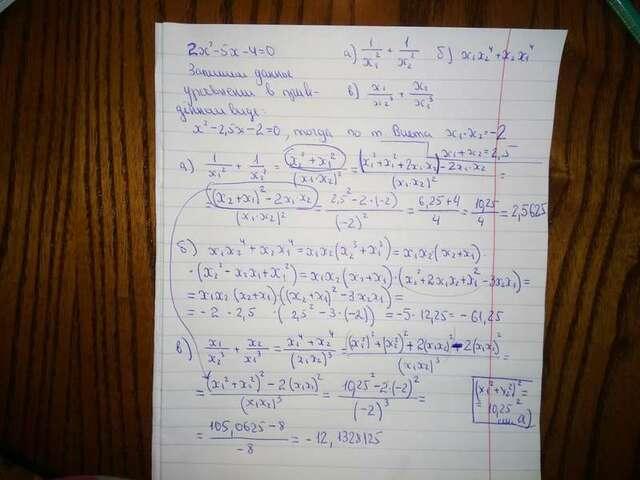 2x²-5x-4=0  а) 1/x₁² + 1/x₂²  б) x₁x₂⁴+x₂x₁⁴
Запишем данное
уравнение в приве-  в) x₁/x₂³ + x₂/x₁³
дённом виде:
x²-2,5x-2=0, тогда по т. Виета x₁·x₂=-2
x₁+x₂=2,5
а) 1/x₁² + 1/x₂² = (x₂²+x₁²)/(x₁·x₂)² = ((x₂²+x₁²+2x₁x₂)-2x₁x₂)/(x₁x₂)² =
= ((x₂+x₁)²-2x₁x₂)/(x₁·x₂)² = (2,5²-2·(-2))/(-2)² = (6,25+4)/4 = 10,25/4 = 2,5625
б) x₁x₂⁴+x₂x₁⁴=x₁x₂(x₂³+x₁³)=x₁x₂(x₂+x₁)·
·(x₂²-x₂x₁+x₁²)=x₁x₂(x₂+x₁)·(x₂²+2x₁x₂+x₁²-3x₂x₁)=
=x₁x₂(x₂+x₁)·((x₂+x₁)²-3x₂x₁)=
=-2·2,5·(2,5²-3·(-2))=-5·12,25=-61,25
в) x₁/x₂³ + x₂/x₁³ = (x₁⁴+x₂⁴)/(x₁x₂)³ = ((x₁²)²+(x₂²)²+2(x₁x₂)²-2(x₁x₂)²)/(x₁x₂)³ =
= ((x₁²+x₂²)²-2(x₁x₂)²)/(x₁x₂)³ = (10,25²-2·(-2)²)/(-2)³ =
(x₁²+x₂²)²=
=10,25²
см. а)
= (105,0625-8)/-8 = -12,1328125